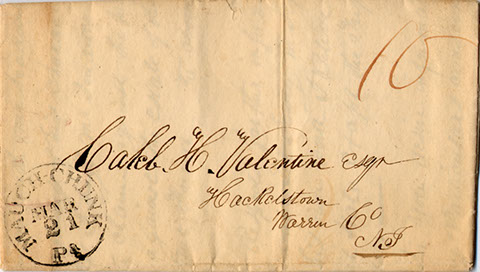 10
Caleb H. Valentine esqr
Hackelstown
Warren Co
NJ
MAUCH CHUNK
MAR
21
Pa